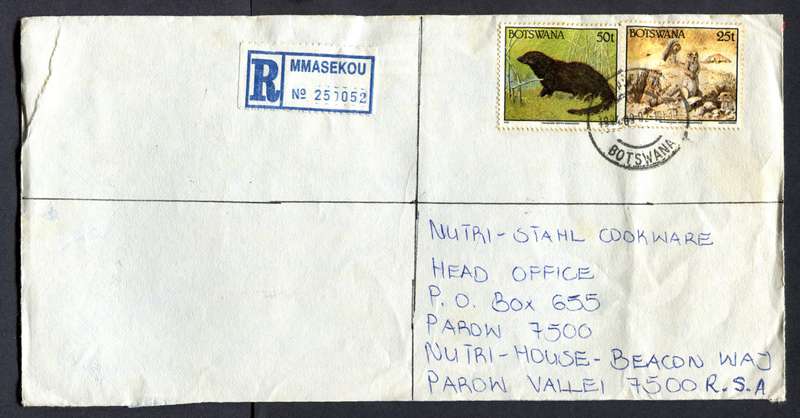 BOTSWANA 50t
BOTSWANA 25t
R MMASEKOU
No 251052
BOTSWANA
NUTRI-STAHL COOKWARE
HEAD OFFICE
P.O. BOX 655
PAROW 7500
NUTRI-HOUSE-BEACON WAY
PAROW VALLEI 7500 R.S.A